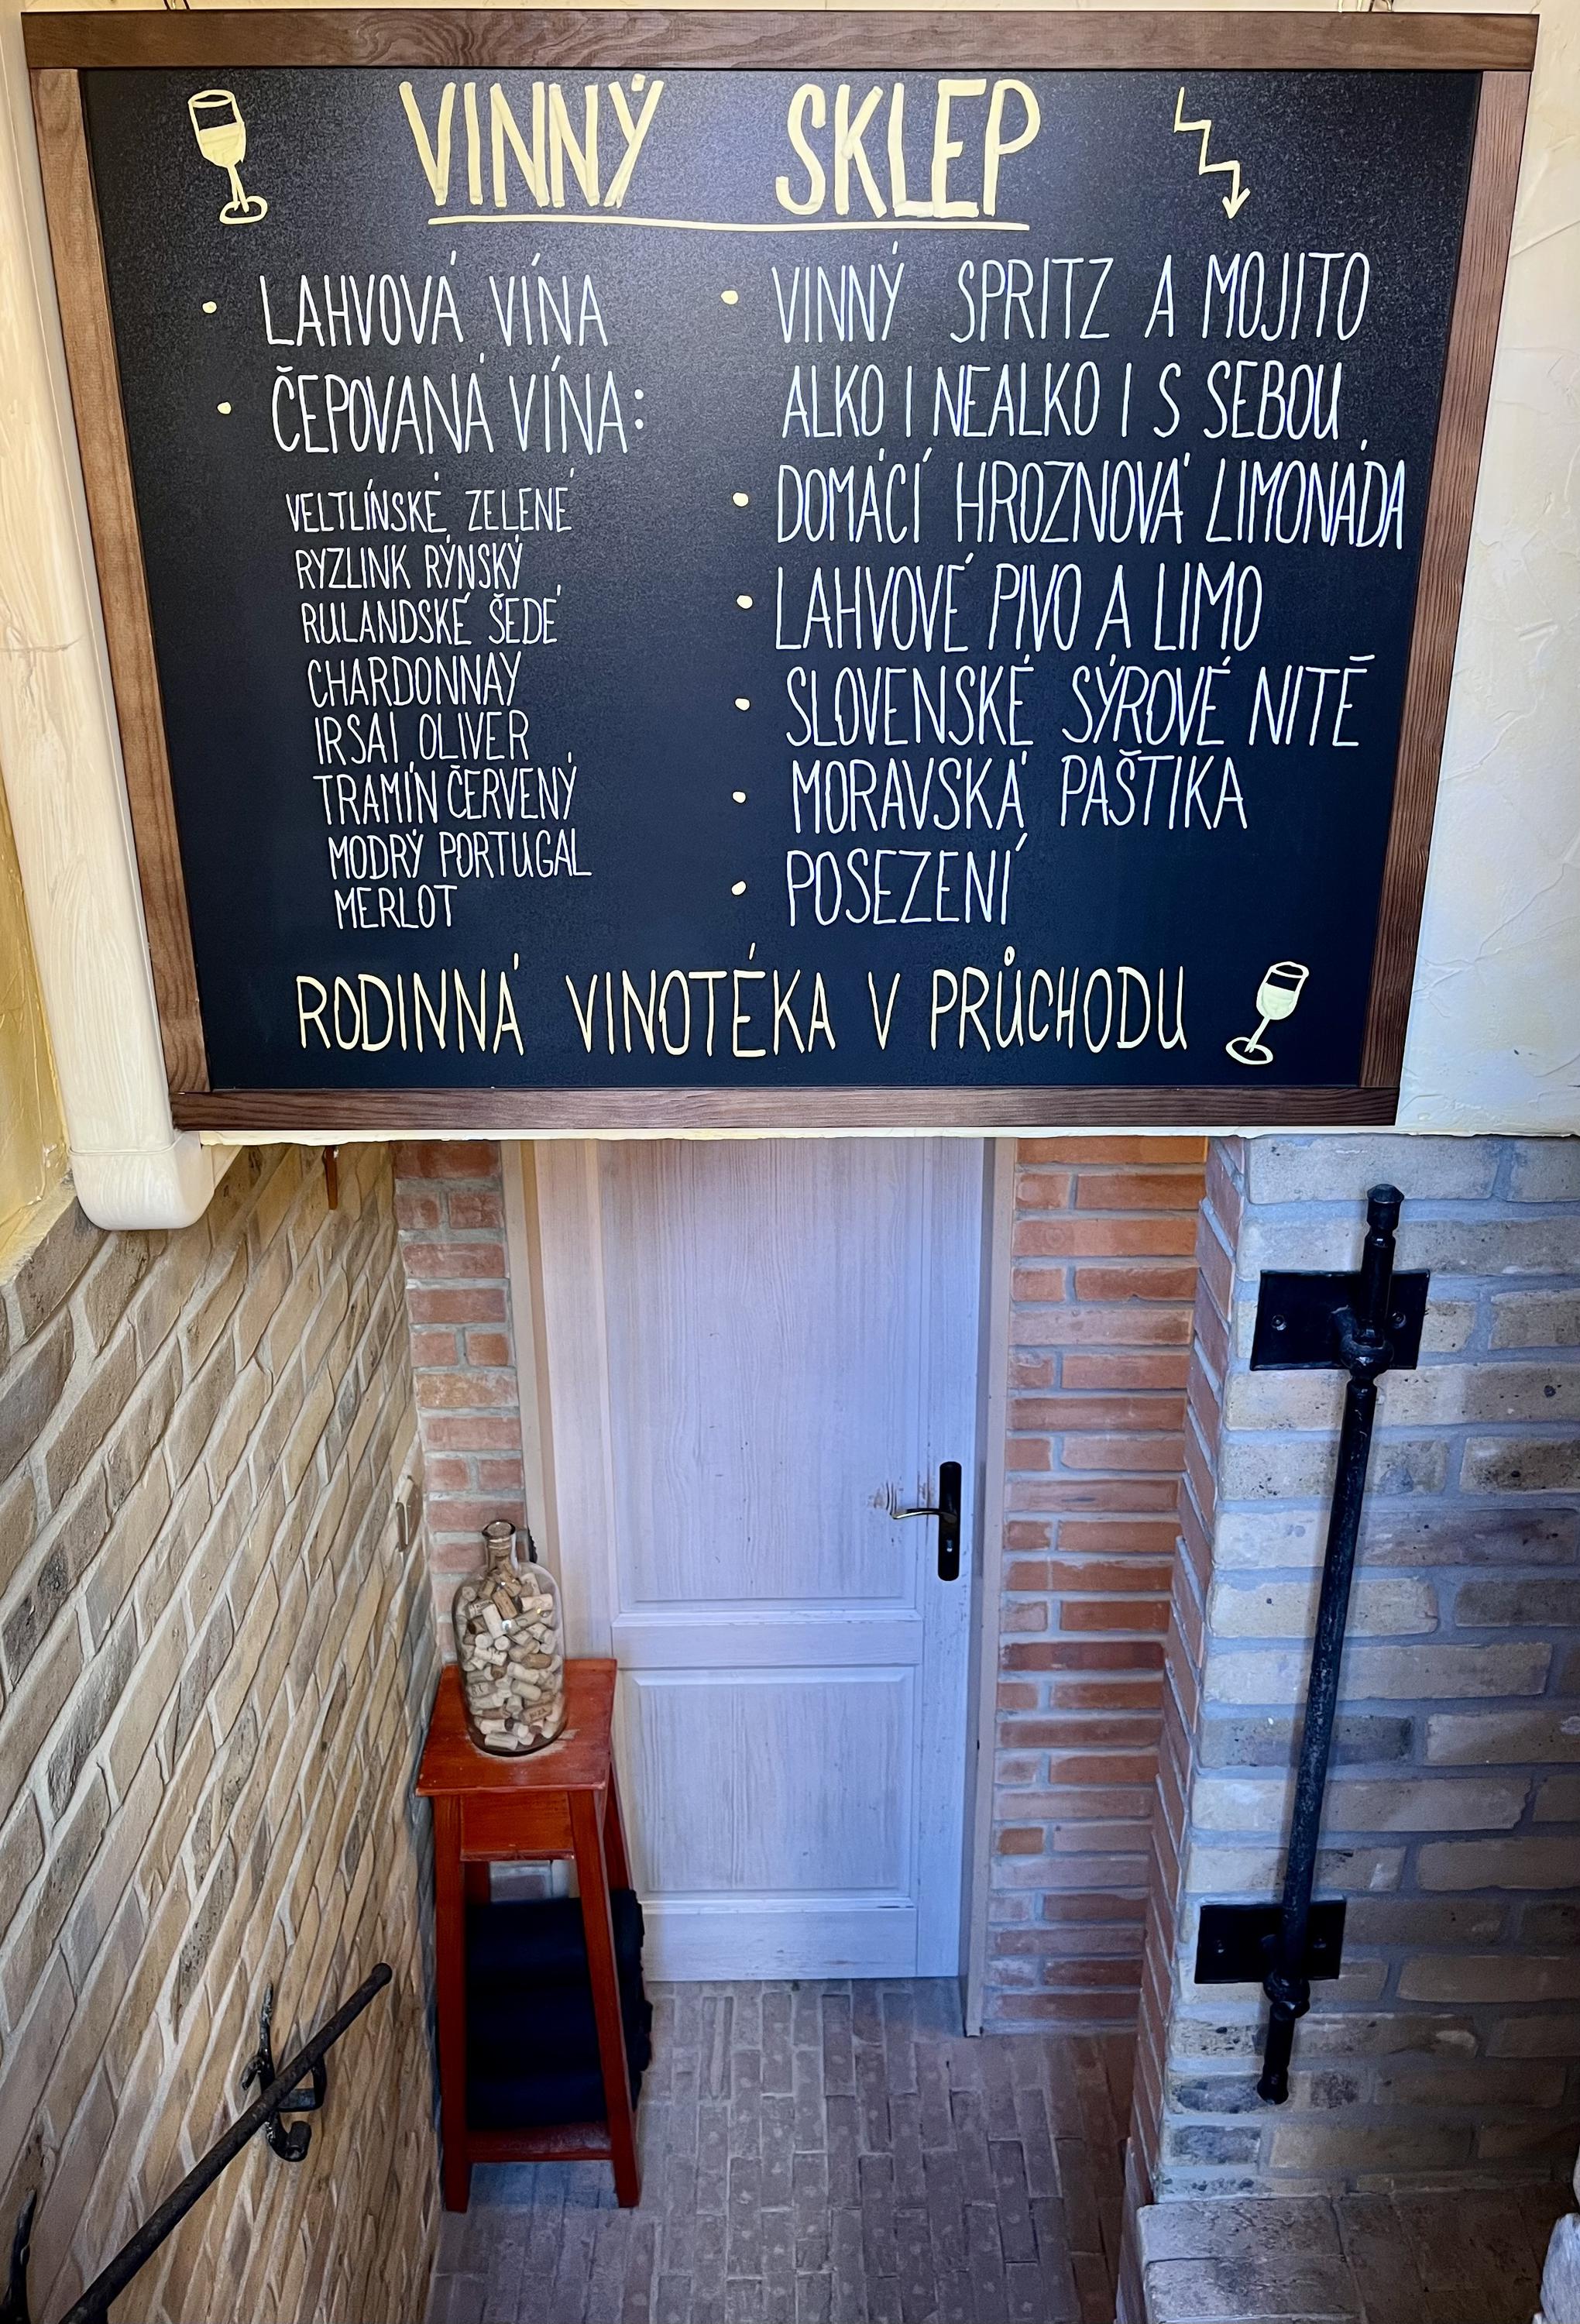 VINNÝ SKLEP
• LAHVOVÁ VÍNA
• ČEPOVANÁ VÍNA:
VELTLÍNSKÉ ZELENÉ
RYZLINK RÝNSKÝ
RULANDSKÉ ŠEDÉ
CHARDONNAY
IRSAI OLIVER
TRAMÍN ČERVENÝ
MODRÝ PORTUGAL
MERLOT
• VINNÝ SPRITZ A MOJITO
ALKO I NEALKO I S SEBOU
• DOMÁCÍ HROZNOVÁ LIMONÁDA
• LAHVOVÉ PIVO A LIMO
• SLOVENSKÉ SÝROVÉ NITĚ
• MORAVSKÁ PAŠTIKA
• POSEZENÍ
RODINNÁ VINOTÉKA V PRŮCHODU